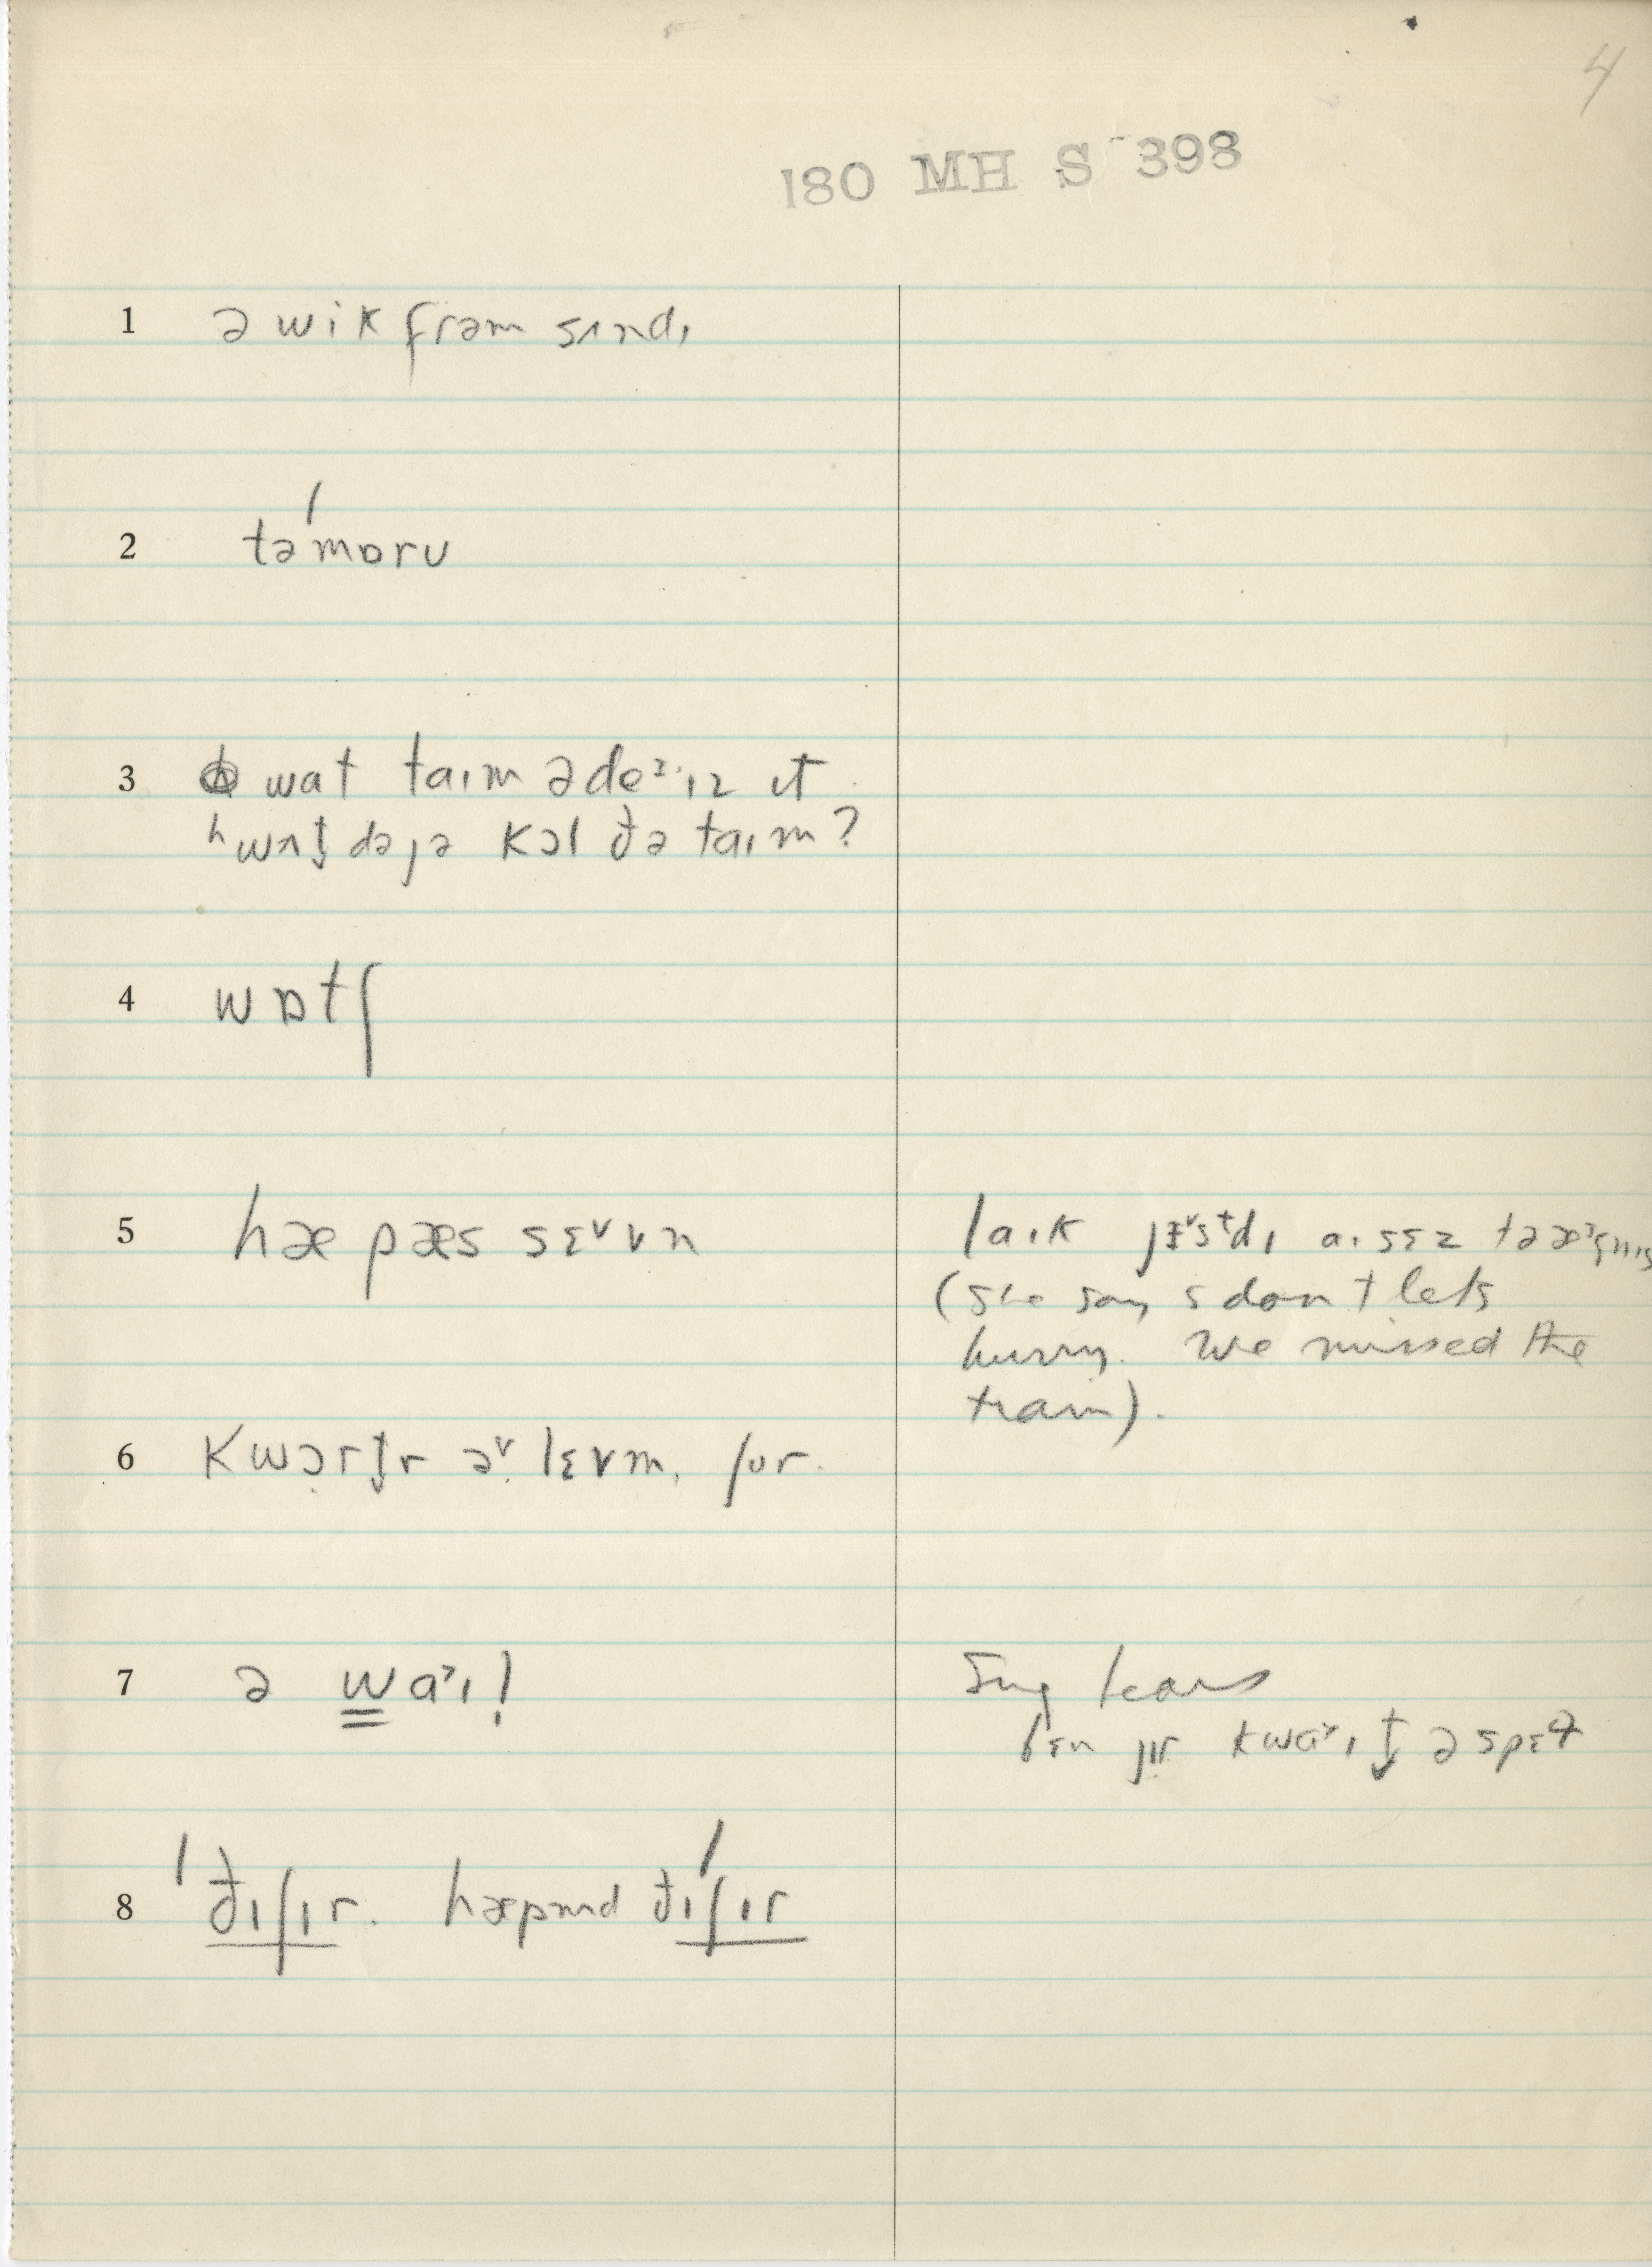 4
180 MH S 398
1 ə wik frəm sʌndɪ
2 tə'mɒrʊ
3 wat taɪm ə deᶻ ɪz ɪt
ʰwʌt̬ dəjə kɔl ðə taɪm?
4 wɒtʃ
5 hæ pæs sɛ˅vn̩
laɪk jɛ˅sᵗdɪ aɪ sɛz tə
(she says don't lets
hurry. We missed the
train).
6 kwɔrt̬r ə˅ lɛvm̩, fʊr.
7 ə wa˃ɪ!
Sug
bɛn jɪr kwa˃ɪt̬ ə spɛ
8 'ðɪʃɪr. hæpm̩d ðɪ'ʃɪr